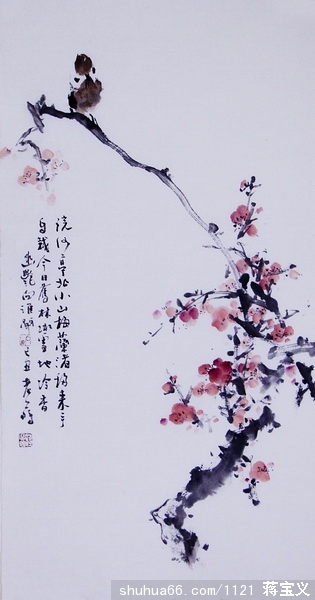 浣沙亭北小山梅蘭渚移来手
自栽今日舊林冰雪地冷香
幽艷向誰開己丑
shuhua66.com/1121 蒋宝义